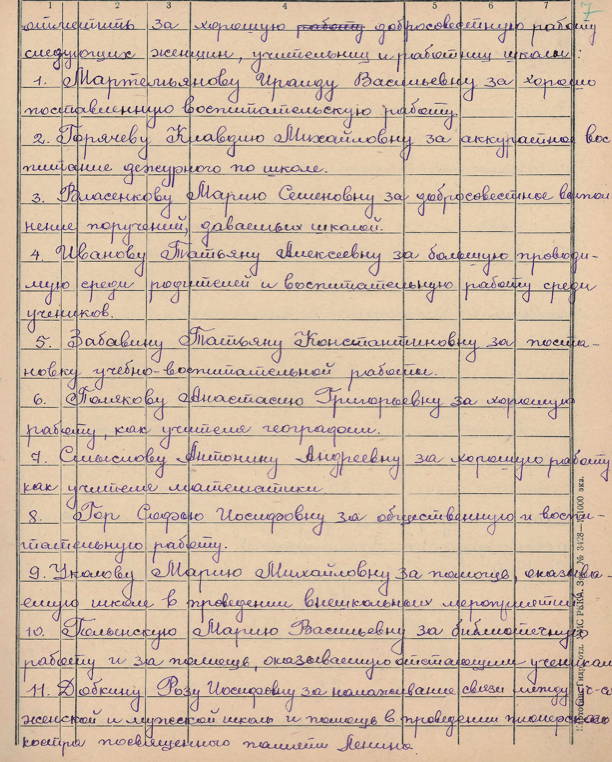 1 2 3 4 5 6 7
7
отметить за хорошую работу добросовестную работу
следующих женщин, учительниц и работниц школы:
1. Мартемьянову Ираиду Васильевну за хорошо
поставленную воспитательскую работу.
2. Горячеву Клавдию Михайловну за аккуратное вос
питание дежурного по школе.
3. Власенкову Марию Семеновну за добросовестное выпол
нение поручений, даваемых школой.
4. Иванову Татьяну Алексеевну за большую проводи-
мую среди родителей и воспитательную работу среди
учеников.
5. Забавину Татьяну Константиновну за поста-
новку учебно-воспитательной работы.
6. Полякову Анастасию Григорьевну за хорошую
работу, как учителя географии.
7. Смыслову Антонину Андреевну за хорошую работу
как учителя математики
8. Гор Софью Иосифовну за общественную и воспи-
тательную работу.
9. Уколову Марию Михайловну за помощь, оказыва-
емую школе в проведении внешкольных мероприятий
10. Польенскую Марию Васильевну за библиотечную
работу и за помощь, оказываемую отстающим ученикам
11. Добкину Розу Иосифовну за налаживание связи между
женской и мужской школы и помощь в проведении пионерского
костра посвященного памяти Ленина.
РККА. № 3428—1000 экз.